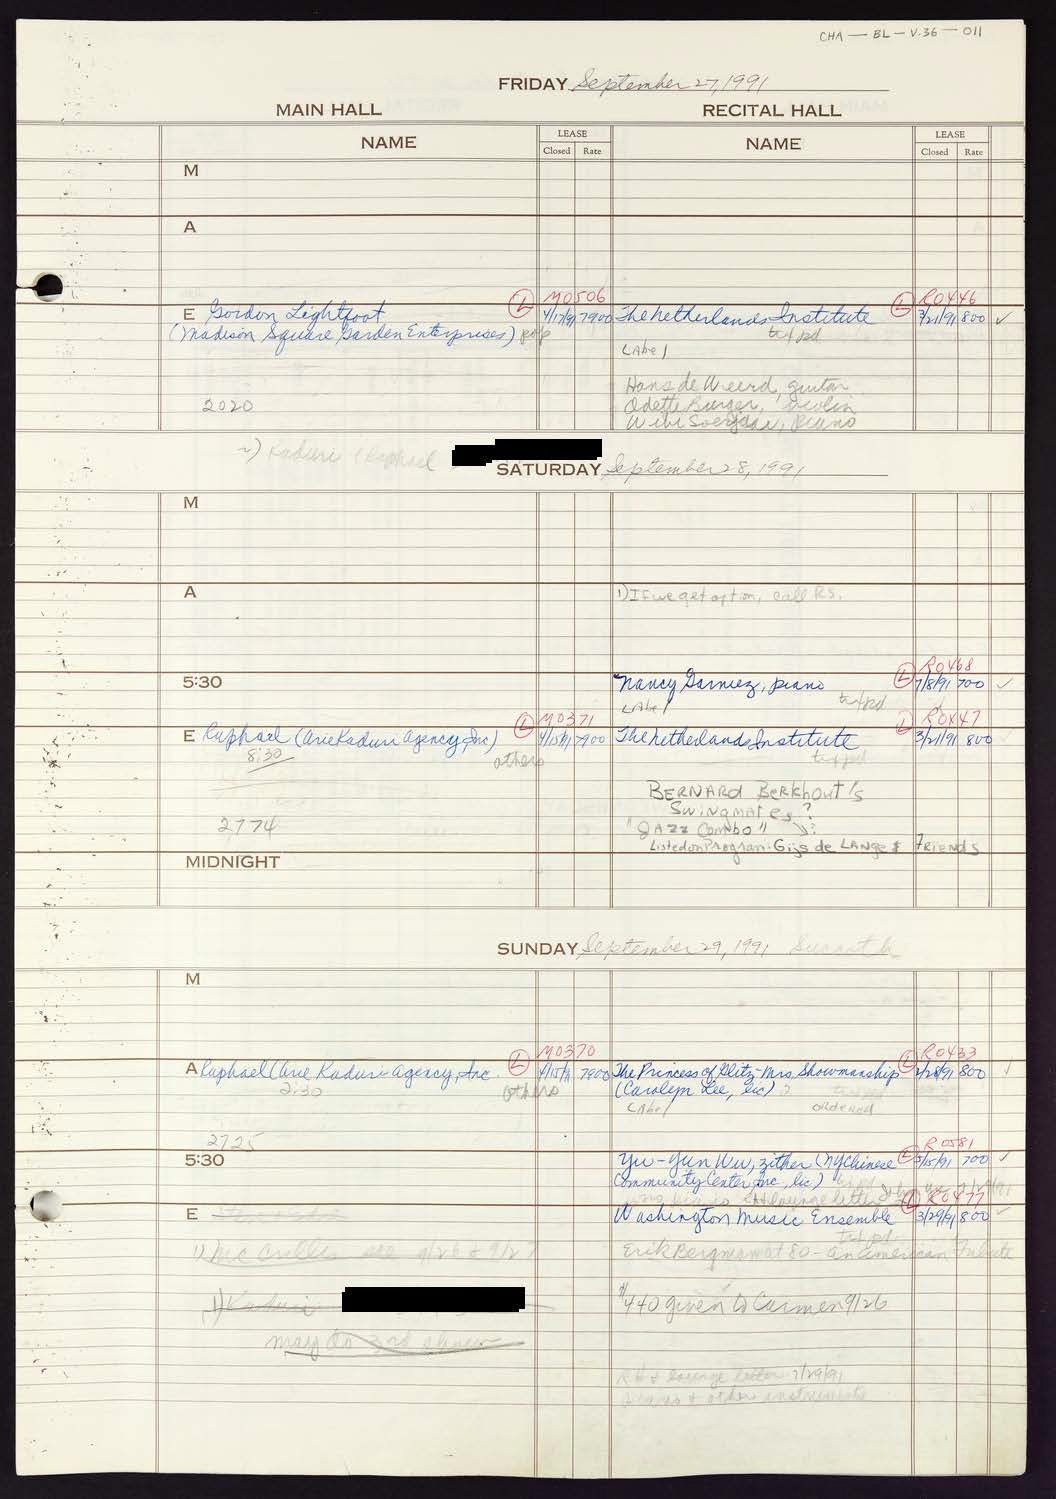 CHA — BL — V.36 — 011
FRIDAY September 27, 1991
MAIN HALL RECITAL HALL
NAME LEASE NAME LEASE
Closed Rate Closed Rate
M
A
L M0506 L R0446
E Gordon Lightfoot 4/17/91 7900 The Netherlands Institute 3/21/91 800 ✓
(Madison Square Garden Enterprises) pop
LAbel
Hans de Weerd, guitar
2020 Odette Burger, violin
Wibi Soerjadi, piano
Kaduri / Raphael
SATURDAY September 28, 1991
M
A 1) If we get option, call RS.
L R0468
5:30 Nancy Garniez, piano 7/8/91 700 ✓
LAbel
L M0371 L R0447
E Raphael (Arie Kaduri Agency, Inc) 4/15/91 7900 The Netherlands Institute 3/21/91 800
8:30 others
BERNARD Berkhout's
Swingmates?
2774 "JAZZ Combo"
Listed on Program: Gijs de LANge & FRiENdS
MIDNIGHT
SUNDAY September 29, 1991
M
L M0370 L R0433
A Raphael (Arie Kaduri Agency, Inc. 4/15/91 7900 The Princess of Glitz-Mrs. Showmanship 2/28/91 800
2:30 others (Carolyn Lee, lic)
LAbel ordered
2725 L R0581
5:30 Yu-Yun Wu, zither (NY Chinese 5/15/91 700 ✓
Community Center, Inc, lic)
L R0477
E Washington Music Ensemble 3/29/91 800
1) Mc Cullen see 9/26 & 9/27 Erik Bergman at 80 - An American Tribute
1) Kaduri $440 given to Carmen 9/26
may do 3rd show
RH & lounge letter 7/29/91
Pianos & other instruments